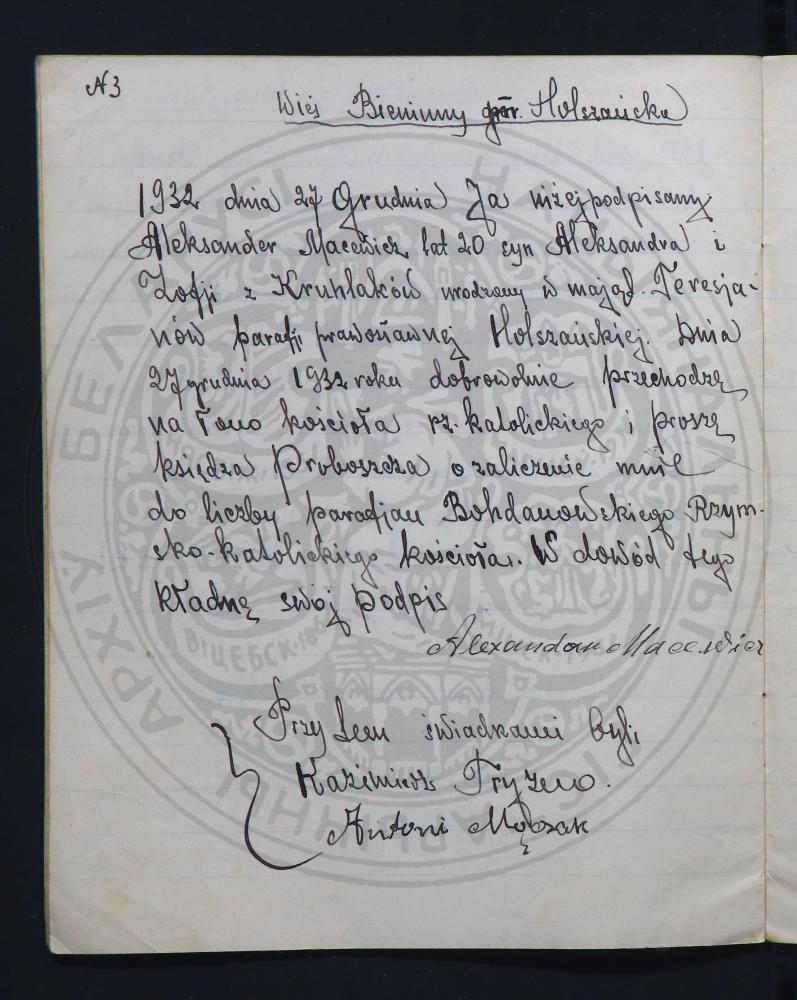 N3
Wieś Bieniuny gm. Holszańska
1932 dnia 27 Grudnia Ja niżej podpisany
Aleksander Macewicz lat 20 syn Aleksandra i
Zofji z Kruhlaków urodzony w mająt. Teresja-
nów parafji prawosławnej Holszańskiej. Dnia
27 grudnia 1932 roku dobrowolnie przechodzę
na łono kościoła rz-katolickiego i proszę
księdza Proboszcza o zaliczenie mnie
do liczby parafjan Bohdanowskiego Rzym-
sko-katolickiego kościoła. W dowód tego
kładnę swój podpis
Alexandar Macewicz
Przy tem świadkami byli
Kazimierz Tryzno.
Antoni
БЕЛАРУСІ
АРХІЎ
ВІЦЕБСК